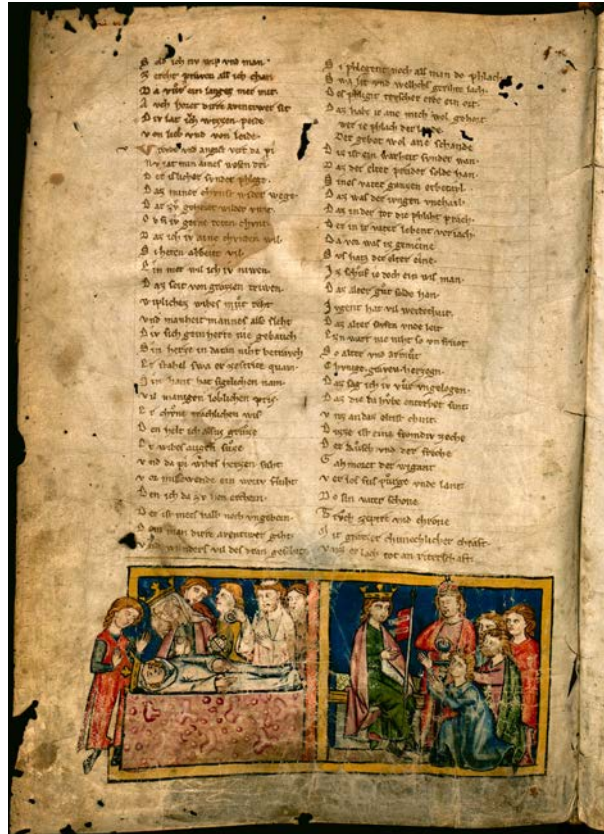 Sold ich nv wip vnd man
Ze reht pruven als ich chan
Da vuͤr ein langes mer mit
Nv horet dirre aventwer sit
Div lat ivch wizzen peide
Von lieb vnd von leide
vnd angest vert da pi
Nv lat min aines wesen dri
Der islicher synder phlege
Daz miner chvnst wider wege
Dar zv gehoret wilder vunt
Ob si iv gerne teten chvnt
Daz ich iv aine chvnden wil
Si heten arbeit vil
Ein mer wil ich iv niwen
Daz seit von grozzen triwen
Wipliches wibes reht
vnd manheit mannes also sleht
Div sich gein herte nie gebauch
Sin hertze in dar an niht betrauch
Er stahel swa er ze strite quam
Sin hant hat sigelichen nam
Vil manigen loblichen pris
Er chvne trachlichen wis
Den helt ich alsus gruͤze
Er wibes augen suͤze
vnd da pi wibes hertzen suht
vor missewende ein wariv fluht
Den ich da zv han erchorn
Der ist mers halb noch vngeborn
Dem man dirre aventwer giht
vnd wunders vil des dran geschiht
Si phlegent noch als man do phlach
Swa lit vnd welhschs gerihte lach
Des phligt tevscher erde ein ort
Daz habt ir ane mich wol gehort
Swer ie phlach der lande
Der gebot wol ane schande
Diz ist ein warheit synder wan
Daz der elter pruder solde han
Sines vater gantzen erbeteil
Daz was der ivngern vnheil
Daz in der tot die phliht prach
Der in ir vater lebent veriach
Da vor was iz gemeine
Svs hatz der elter eine
Daz schuf io doch ein wis man
Daz alter gut solde han
Jvgent hat vil werdecheit
Daz alter siften vnde leit
Ezn wart nie niht so vnfruot
So alter vnd armut
Chvnige graven hertzogen
Daz sag ich iv vuͤr vngelogen
Daz die da hvbe enterbet sint
vntz an daz elteste chint
Ditze ist eine fremdiv zeche
Der kusch vnd der freche
Gahmoret der wigant
verlos sus puͤrge vnde lant
Do sin vater schone
Trvch zepter vnd chrone
Mit grozzer chvnechlicher chraft
vntz er lach tot an riterschaft